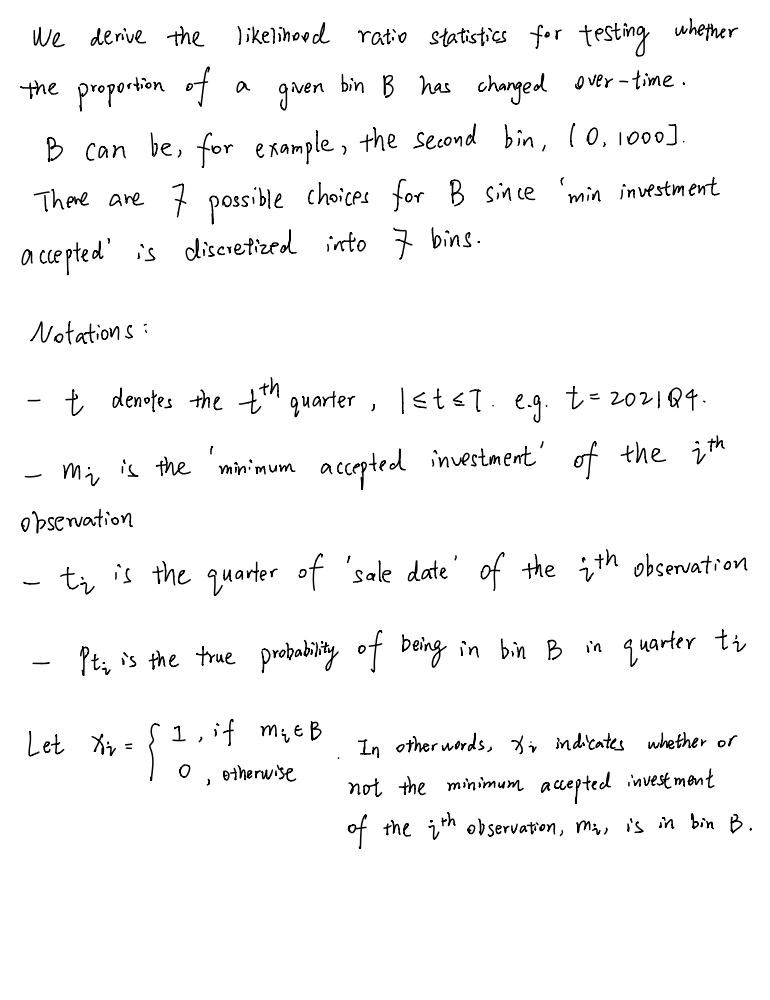 We derive the likelihood ratio statistics for testing whether
the proportion of a given bin B has changed over-time.
B can be, for example, the second bin, (0, 1000].
There are 7 possible choices for B since 'min investment
accepted' is discretized into 7 bins.
Notations:
- t denotes the t^th quarter, 1≤t≤T. e.g. t = 2021Q4.
- m_i is the 'minimum accepted investment' of the i^th
observation
- t_i is the quarter of 'sale date' of the i^th observation
- P_{t_i} is the true probability of being in bin B in quarter t_i
Let x_i = { 1, if m_i ∈ B
0, otherwise
. In other words, x_i indicates whether or
not the minimum accepted investment
of the i^th observation, m_i, is in bin B.